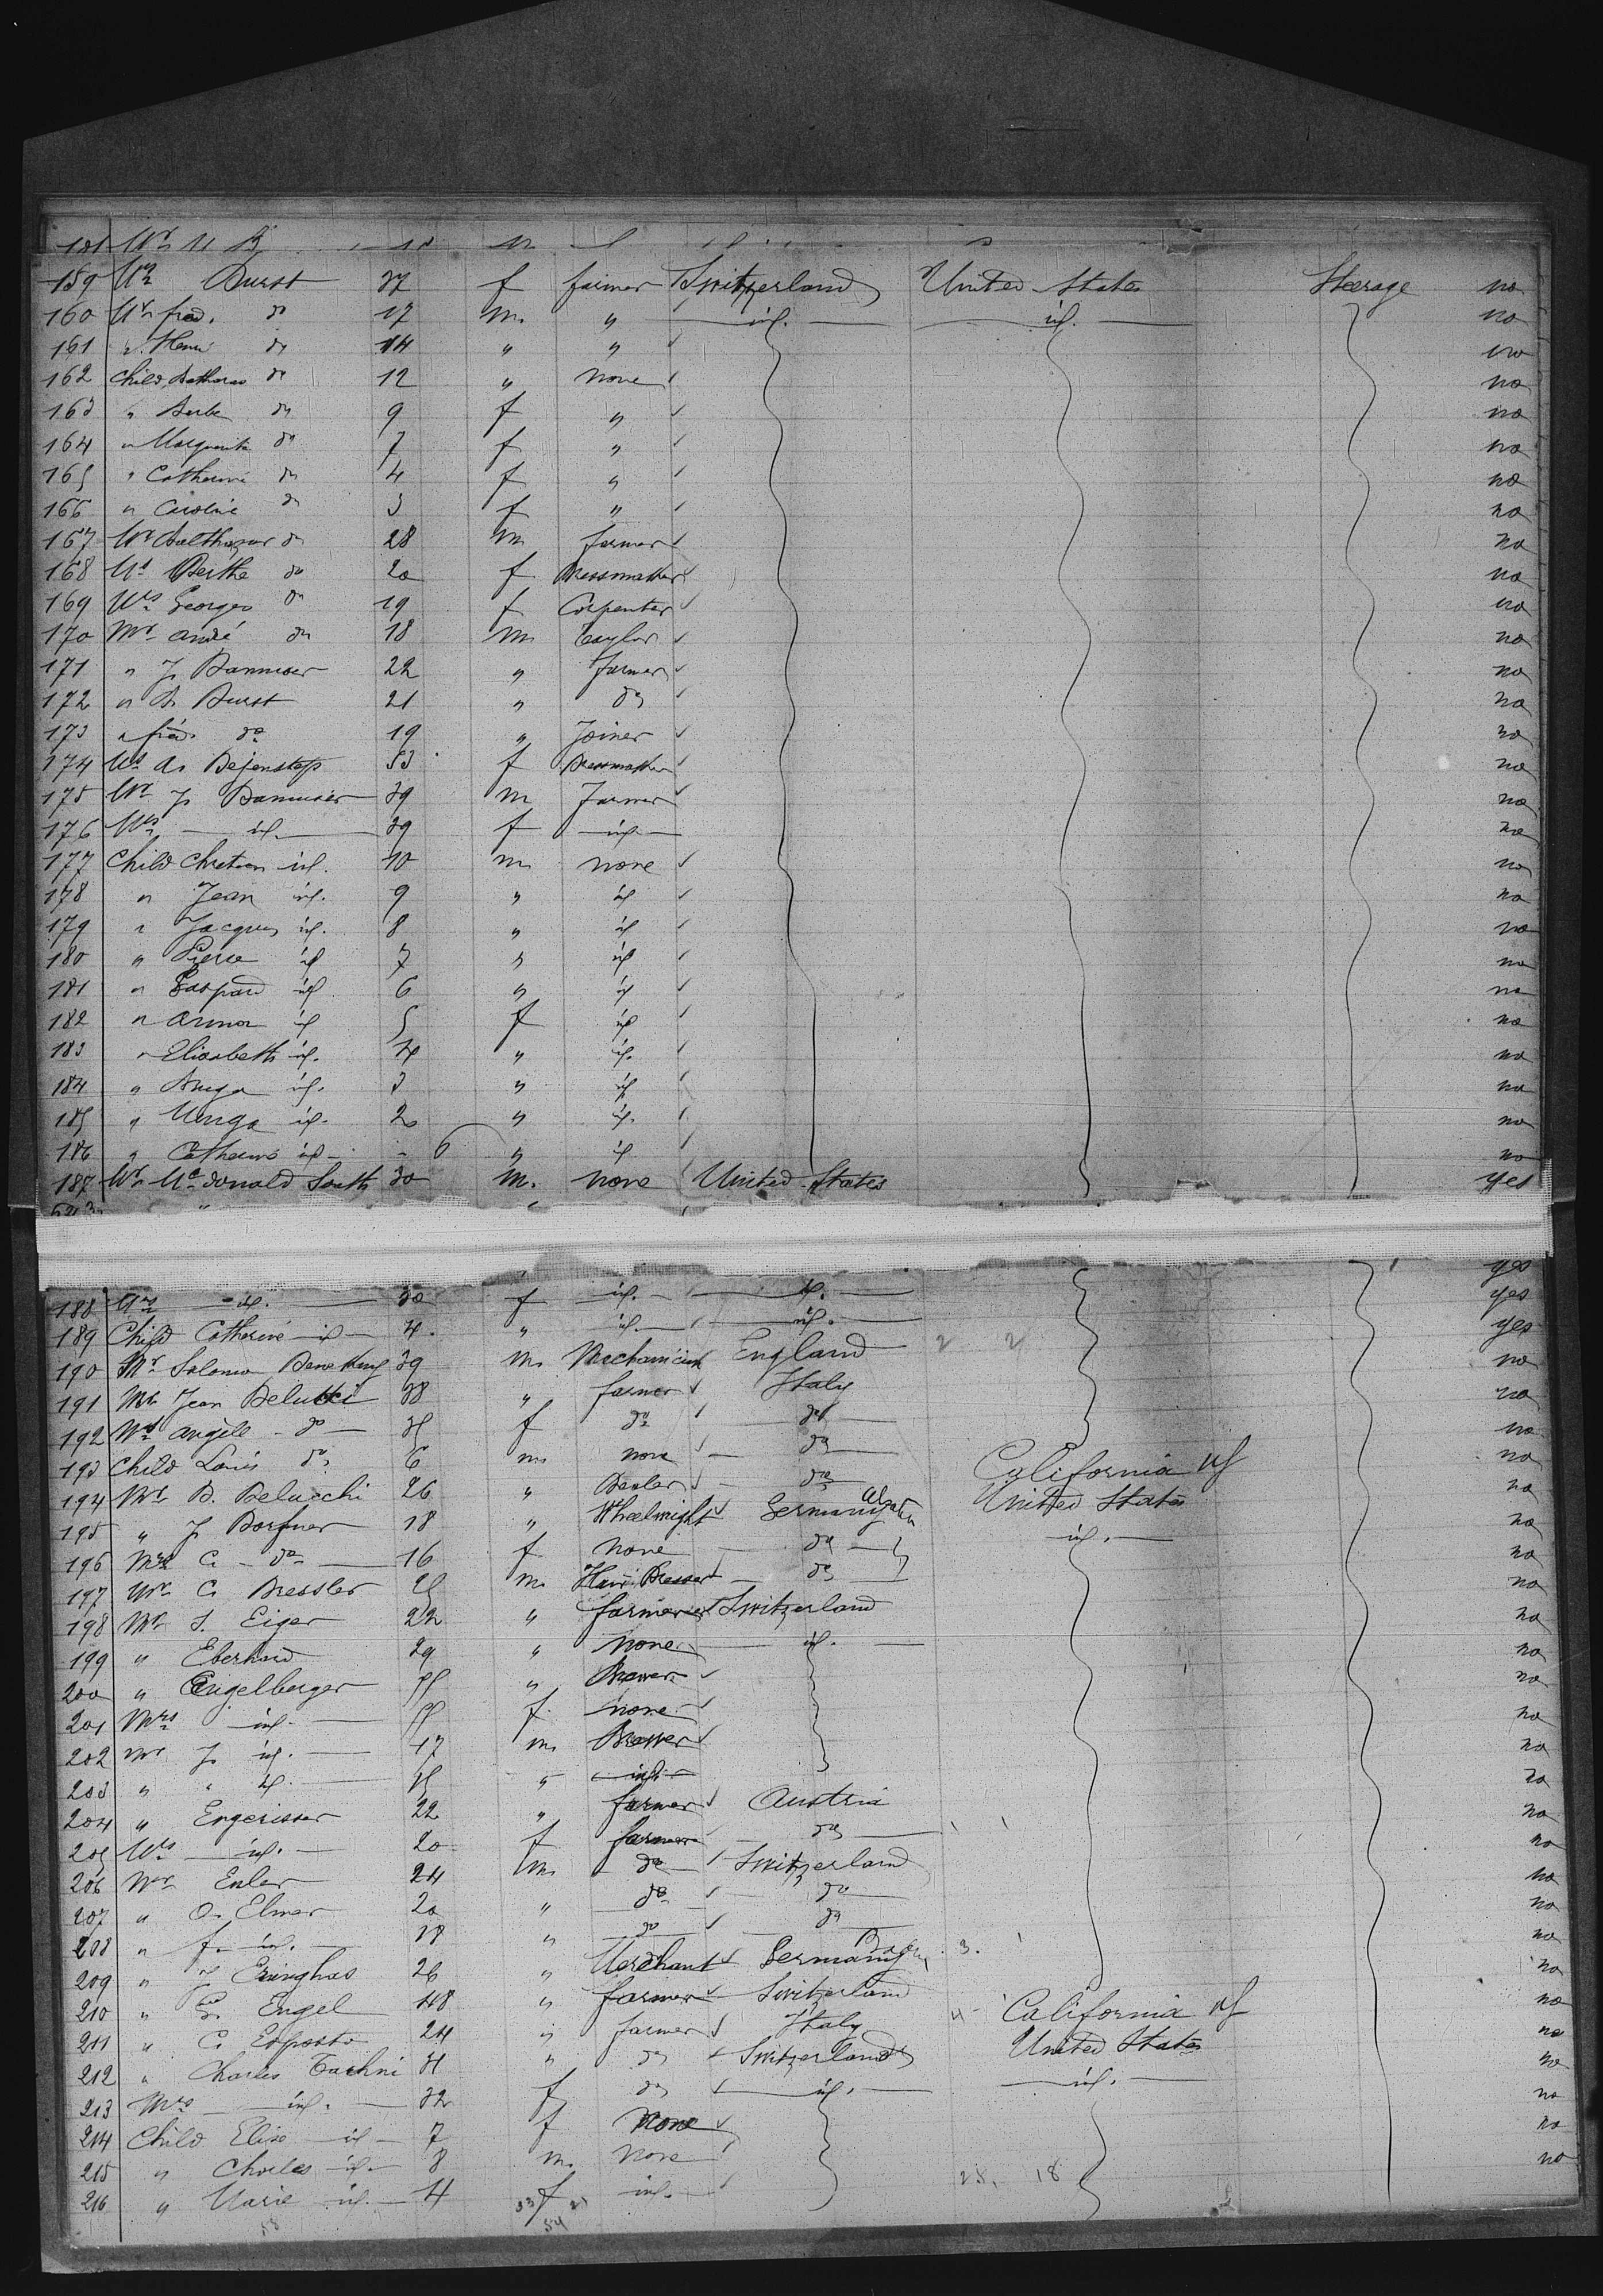 159 Mrs Durst 37 f farmer Switzerland United States Steerage no
160 Mr fred. do 17 m. " id. id. no
161 ". Henri do 14 " " no
162 Child do 12 " none no
163 " Barbe do 9 f " no
164 " Marguerite do 7 f " no
165 " Catherine do 4 f " no
166 " Caroline do 3 f " no
167 Mr Balthazar do 28 m farmer no
168 Ms Berthe do 20 f Dressmaker no
169 Mrs Georges do 19 f Carpenter no
170 Mr André do 18 m Taylor no
171 " J. 22 " farmer no
172 " D. Durst 21 " do no
173 " fréd. do 19 " Joiner no
174 Ms A. 53 f Dressmaker no
175 Mr J. 39 m Farmer no
176 Mrs id. 39 f id. no
177 Child Chretien id. 10 m none no
178 " Jean id. 9 " id no
179 " Jacques id. 8 " id no
180 " Pierre id 7 " id no
181 " Gaspard id 6 " id no
182 " Anna id 5 f id no
183 " Elisabeth id. 4 " id. no
184 " id. 3 " id no
185 " id. 2 " id. no
186 " Catherine id - 6 " id no
187 Mr Mc donald South 30 m. none United States yes
yes
188 Mrs id. 30 f id. id. yes
189 Child Catherine id 4. " id. id. yes
190 Mr Salomon 39 m. Mechanician England 2 2 no
191 Mr Jean Belucci 38 " farmer Italy no
192 Mrs Angèle do 35 f do do no
193 Child Louis do 6 m. none do no
194 Mr B. Belucchi 26 " Dealer do California of no
195 " J. Dorfner 18 " Wheelwright Germany United States no
196 Mrs C. do 16 f none do id. no
197 Mr C. Dressler 25 m. Hair Dresser do no
198 Mr S. Eiger 22 " farmer Switzerland no
199 " Eberhard 29 " none id. no
200 " Engelberger 55 " Brewer no
201 Mrs id. f. none no
202 Mr J. id. 17 m. Brewer no
203 " " id. 15 " id. no
204 " Engerisser 22 " farmer Austria no
205 Mrs id. 20 f farmer do no
206 Mr Euler 24 m. do Switzerland no
207 " O. Elmer 20 " do do no
208 " f. id. 18 " do do no
209 " J. 26 " Merchant Germany 3. no
210 " G. Engel 48 " farmer Switzerland no
211 " C. Esposto 24 " farmer Italy 4 California of no
212 " Charles Tachni 31 " do Switzerland United States no
213 Mrs id. 32 f do id. id. no
214 Child Elise id 7 f none no
215 " Charles id. 8 m. none no
216 " Marie id. 4 f id. 28, 18
58 33 21
54